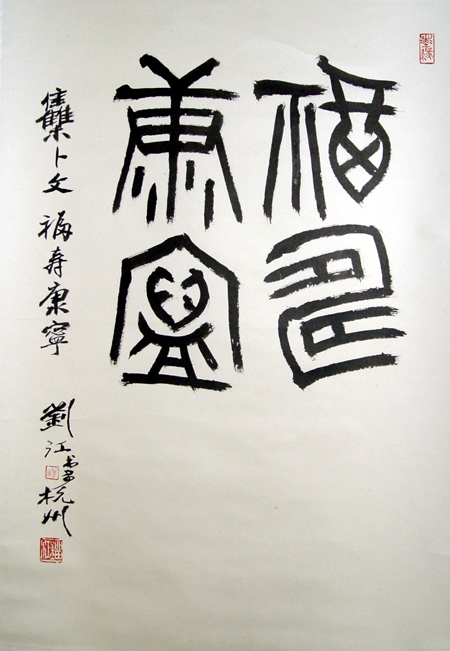 福壽
康寧
集卜文福寿康寧
劉江书于杭州